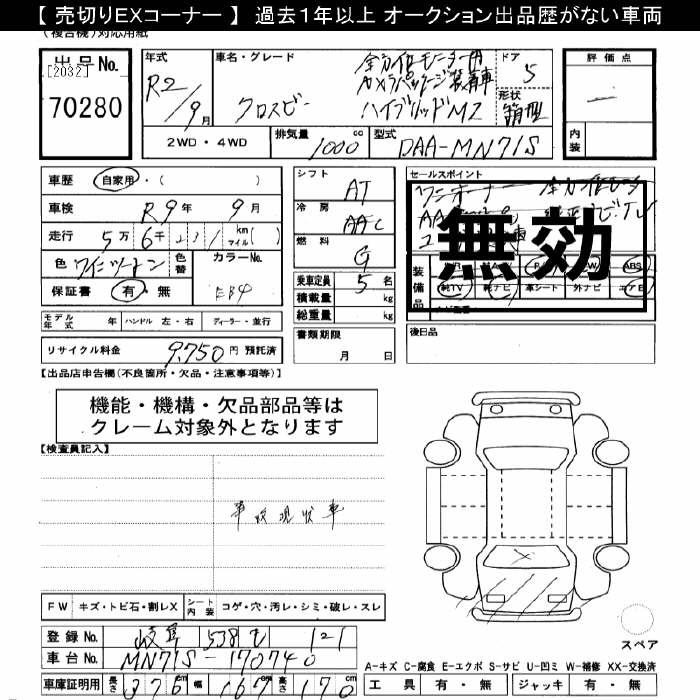 【 売切りEXコーナー 】 過去１年以上 オークション出品歴がない車両
(複合機)対応用紙
出品No.
[2032]
70280
年式
R2/9月
車名・グレード
クロスビー
全方位モニター用
カメラパッケージ装着車
ハイブリッドMZ
ドア
5
形状
箱型
評価点
内装
2WD・4WD
排気量
1000 cc
型式
DAA-MN71S
車歴 自家用・( )
車検 R9年 9月
走行 5万6千 km マイル( )
色 ワインツートン
色替
カラーNo.
保証書 有・無
モデル年式 年 ハンドル 左・右 ディーラー・並行
リサイクル料金 9,750円 預託済
シフト AT
冷房 AAC
燃料 G
乗車定員 5名
積載量 kg
総重量 kg
書類期限
月 日
セールスポイント
ワンオーナー 全方位モニタ
無効
装備品
ABS
純TV 純ナビ 革シート 外ナビ エアB
後日品
【出品店申告欄(不良箇所・欠品・注意事項等)】
機能・機構・欠品部品等は
クレーム対象外となります
【検査員記入】
事故現状車
FW キズ・トビ石・割レX シート内装 コゲ・穴・汚レ・シミ・破レ・スレ
登録No. 岐阜 538 モ 121
車台No. MN71S-170740
車庫証明用 長さ 376cm 幅 167cm 高さ 170cm
スペア
A-キズ C-腐食 E-エクボ S-サビ U-凹ミ W-補修 XX-交換済
工具 有・無 ジャッキ 有・無